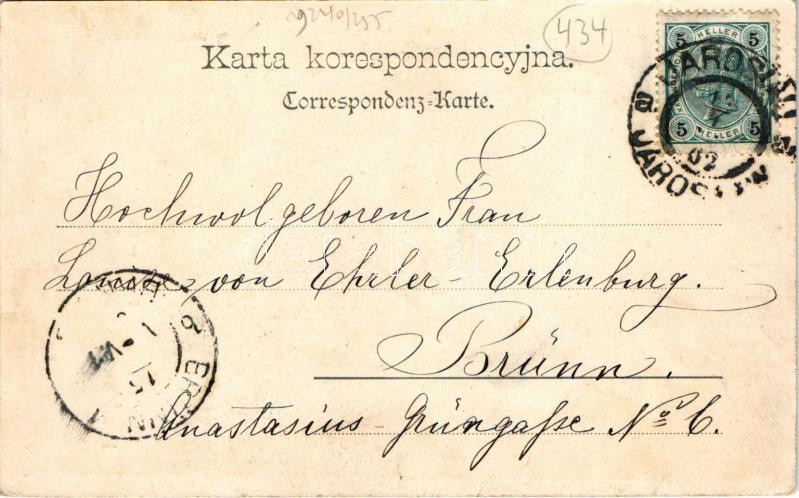 434
Karta korespondencyjna.
Correspondenz-Karte.
5 HELLER 5
5 HELLER 5
JAROSLAU
a.
02
JAROSŁAW
Hochwolgeboren Frau
Louise von Ehrler-Erlenburg.
Brünn.
Anastasius-Grüngasse No 6.